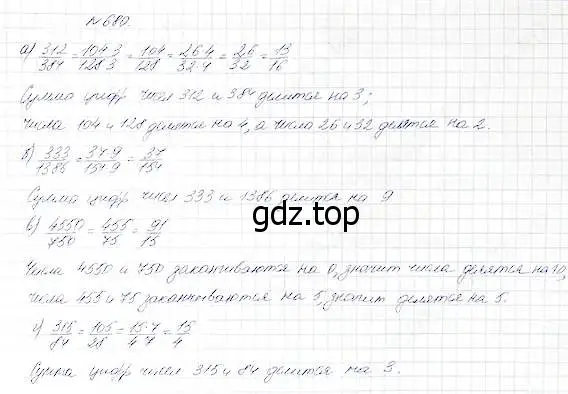 №680.
а) 312/384 = 104·3/128·3 = 104/128 = 26·4/32·4 = 26/32 = 13/16
Сумма цифр чисел 312 и 384 делится на 3;
числа 104 и 128 делятся на 4, а числа 26 и 32 делятся на 2.
б) 333/1386 = 37·9/154·9 = 37/154
Сумма цифр чисел 333 и 1386 делится на 9
gdz.top
в) 4550/750 = 455/75 = 91/15
Числа 4550 и 750 заканчиваются на 0, значит числа делятся на 10,
числа 455 и 75 заканчиваются на 5, значит делятся на 5.
г) 315/84 = 105/28 = 15·7/4·7 = 15/4
Сумма цифр чисел 315 и 84 делится на 3.